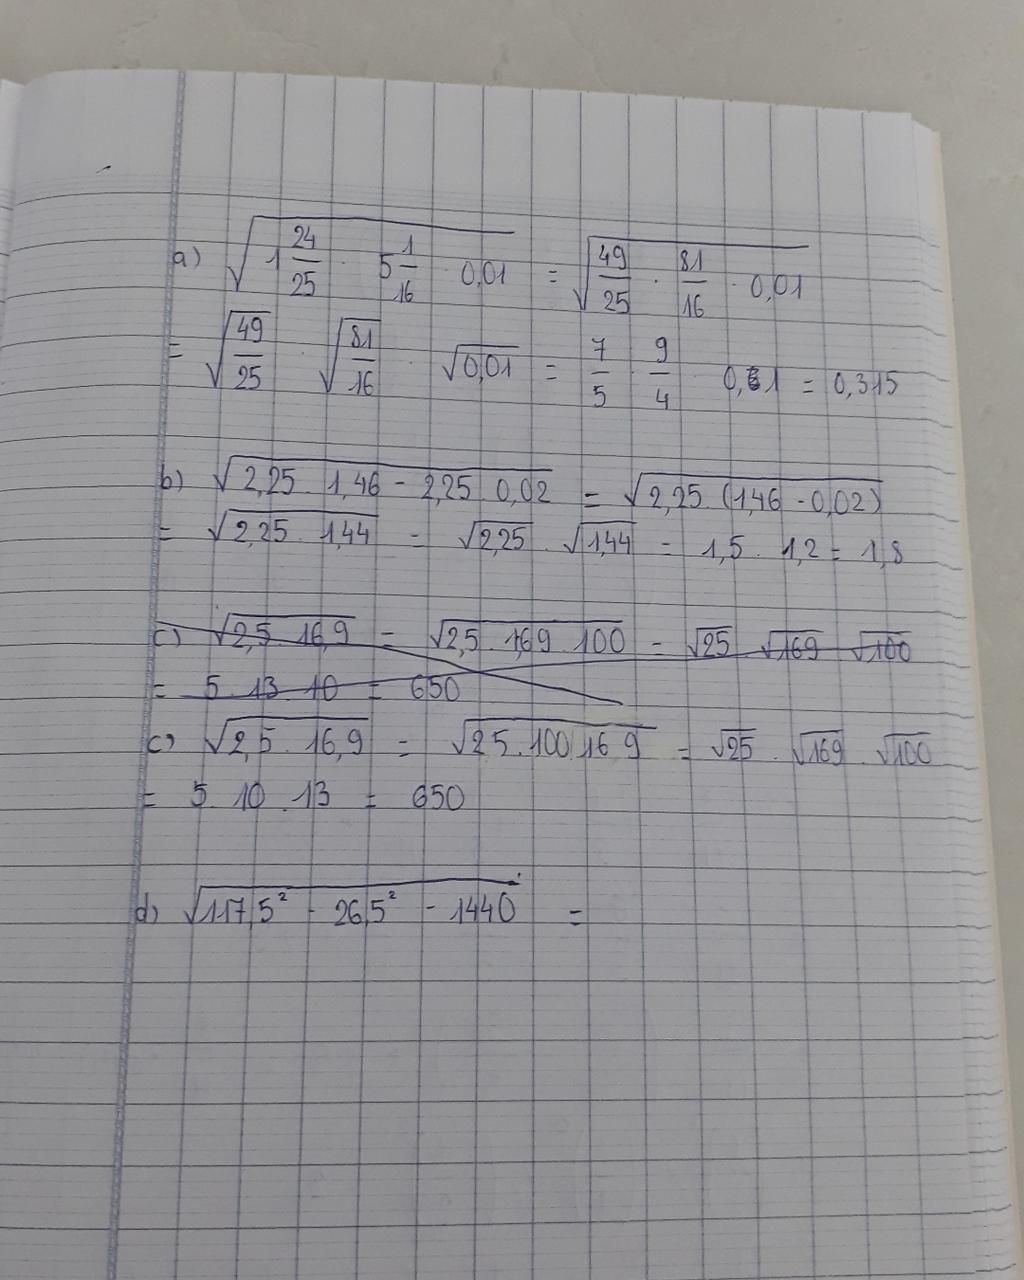 a) √(1 24/25 · 5 1/16 · 0,01) = √(49/25 · 81/16 · 0,01)
= √(49/25) · √(81/16) · √0,01 = 7/5 · 9/4 0,1 = 0,315
b) √(2,25 . 1,46 - 2,25 . 0,02) = √(2,25 . (1,46 - 0,02))
= √(2,25 . 1,44) = √2,25 . √1,44 = 1,5 . 1,2 = 1,8
c) √(2,5 . 16,9) = √(2,5 . 1,69 . 100) = √25 . √169 . √100
= 5 . 13 . 10 = 650
c) √(2,5 . 16,9) = √(25 . 100 . 16 9) = √25 . √169 . √100
= 5 . 10 . 13 = 650
d) √(117,5² - 26,5² - 1440) =